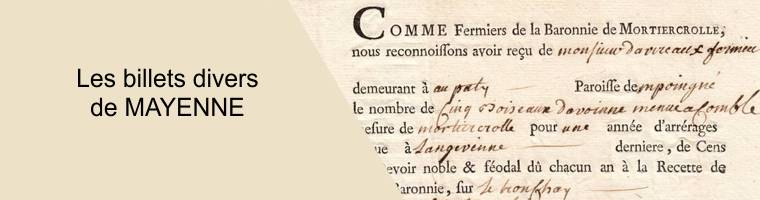 Les billets divers
de MAYENNE
COMME Fermiers de la Baronnie de MORTIERCROLLE,
nous reconnoiſſons avoir reçu de monsieur davireaux fermier
demeurant à au paty Paroiſſe de mpoingné
le nombre de Cinq Boiseaux davoinne menue a Comble
eſure de mortiercrolle pour une année d'arrérages
ue à Langevinne derniere, de Cens
evoir noble & féodal dû chacun an à la Recette de
Baronnie, ſur le